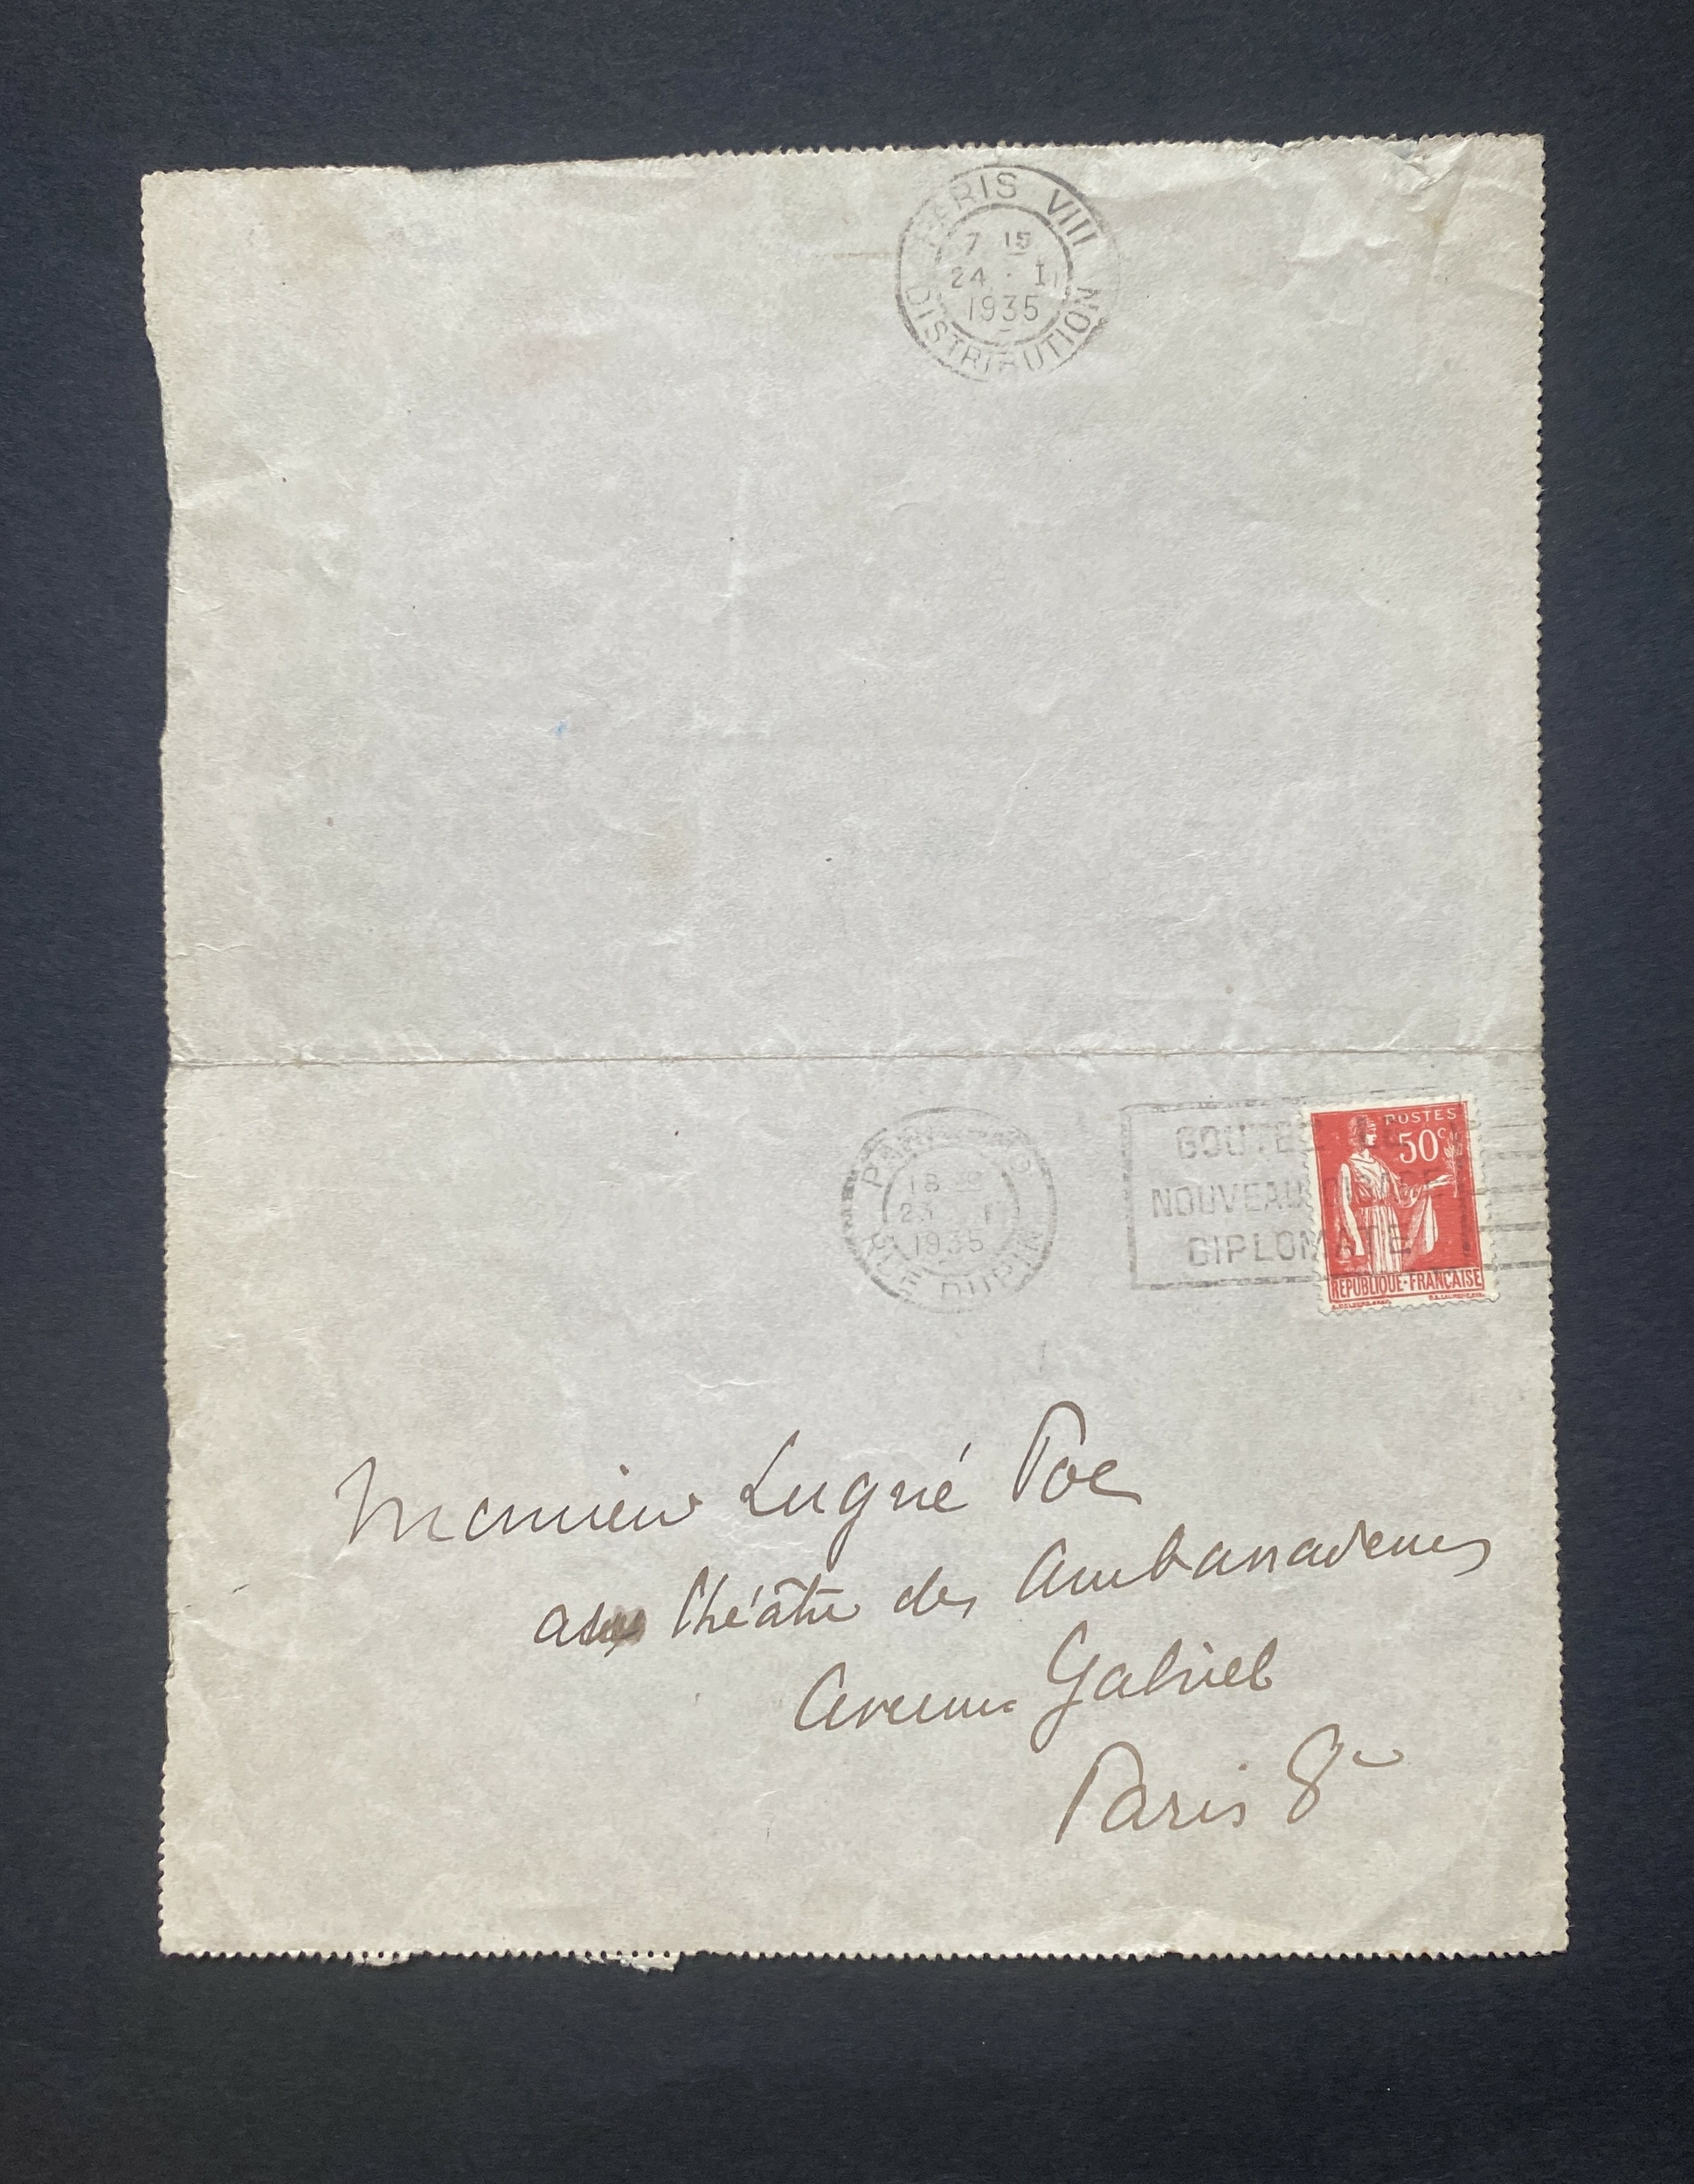 PARIS VIII
7 15
24 · I
1935
DISTRIBUTION
PARIS
18
23 I
1935
DUPIN
GOUTEZ LE
NOUVEAU
DIPLOMATE
POSTES
50c
REPUBLIQUE·FRANÇAISE
Monsieur Lugné Poe
au théâtre des Ambassadeurs
Avenue Gabriel
Paris 8e